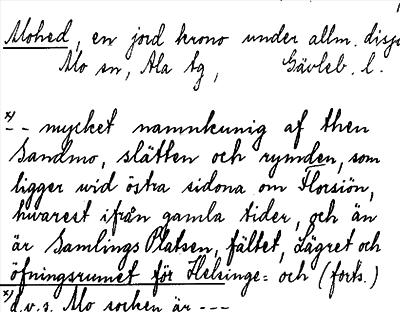 Mohed, en jord krono under allm. disp
Mo sn, Ala tg, Gävleb. l.
x)
-- mycket namnkunig af then
Sandmo, slätten och rymden, som
ligger wid östra sidona om Florsiön,
hwarest ifrån gamla tider, och än
är Samlings Platsen, fältet, Lägret och
öfningsrumet för Helsinge= och (forts.)
x) d.v.s. Mo socken är ---